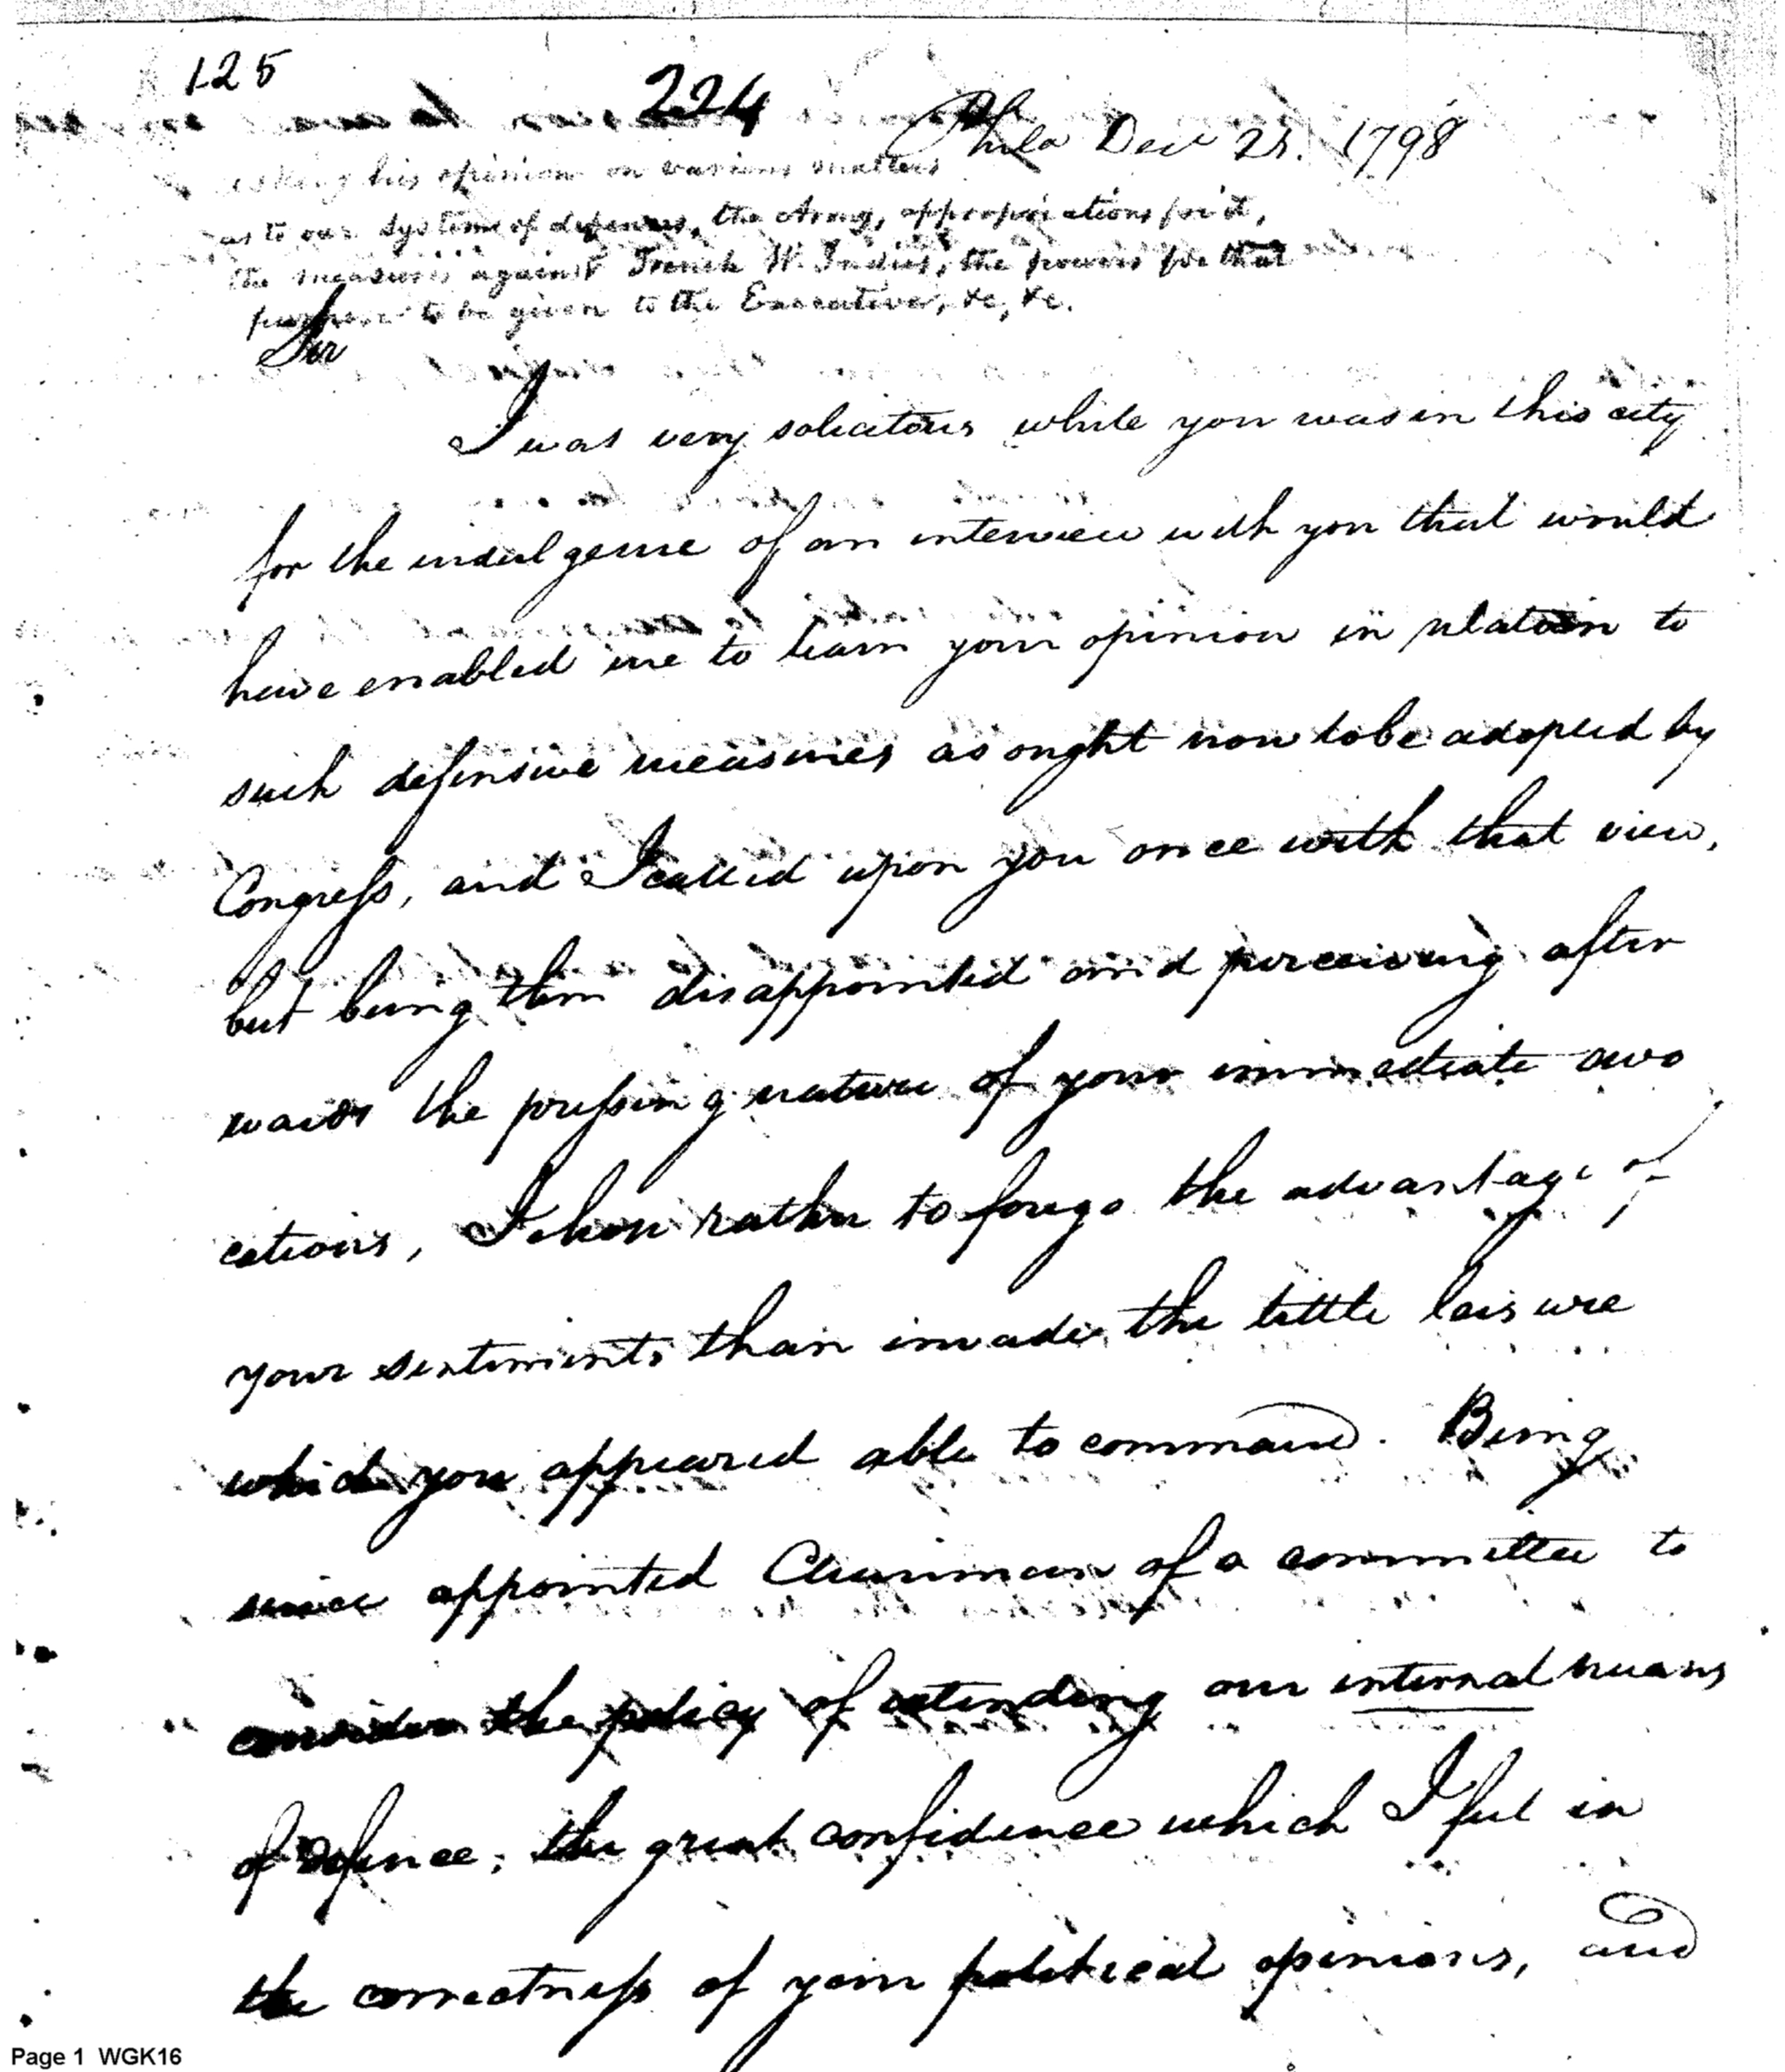 125
224
Phila Decr 21. 1798
asking his opinion on various matters
as to our system of defenses, the Army, appropriations for it,
the measures against French W. Indies, the powers for that
purpose to be given to the Executive, &c, &c.
Sir
I was very solicitous while you was in this city
for the indulgence of an interview with you that would
have enabled me to learn your opinion in relation to
such defensive measures as ought now to be adopted by
Congress, and I called upon you once with that view,
but being then disappointed and perceiving after
wards the pressing nature of your immediate avo
cations, I chose rather to forego the advantage of
your sentiments than invade the little leisure
which you appeared able to command. Being
since appointed Chairman of a committee to
consider the policy of extending our internal means
of defence, the great confidence which I feel in
the correctness of your political opinions, and
Page 1 WGK16